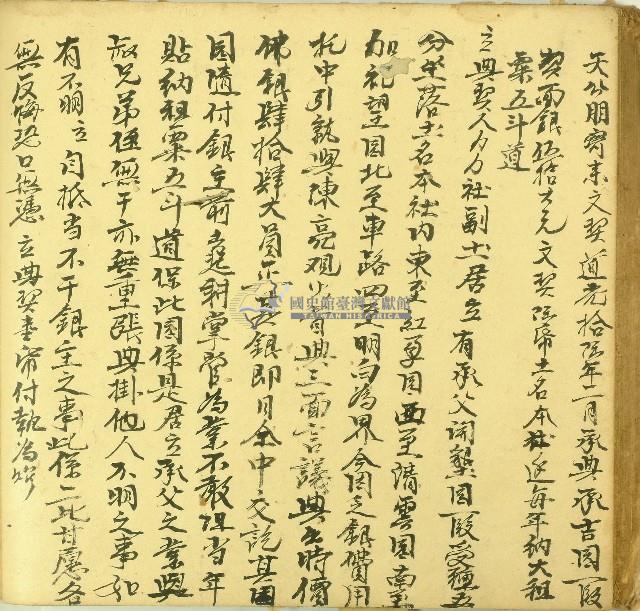 天分明齊来文契道光拾陸年二月承典承吉園一段
契面銀伍拾大元文契陸帋土名本社迄每年納大租
粟五斗道
立典契人力力社副土居立有承父開墾園一段受種五
分坐落土名本社内東至紅草園西至潛雲園南至
加禮望園北至車路四至明白為界今因乏銀費用
托中引就與陳亮观出首典三面言議典出時價
佛銀肆拾肆大員正其銀即日仝中交訖其園
園隨付銀主前去起耕掌管為業不敢阻當年
貼納租粟五斗道保此園係是居立承父之業與
叔兄弟侄無干亦無重張典掛他人不明之事如
有不明立自抵当不干銀主之事此係二比甘愿各
無反悔恐口無憑立典契壹帋付執為炤
國史館臺灣文獻館
TAIWAN HISTORICA